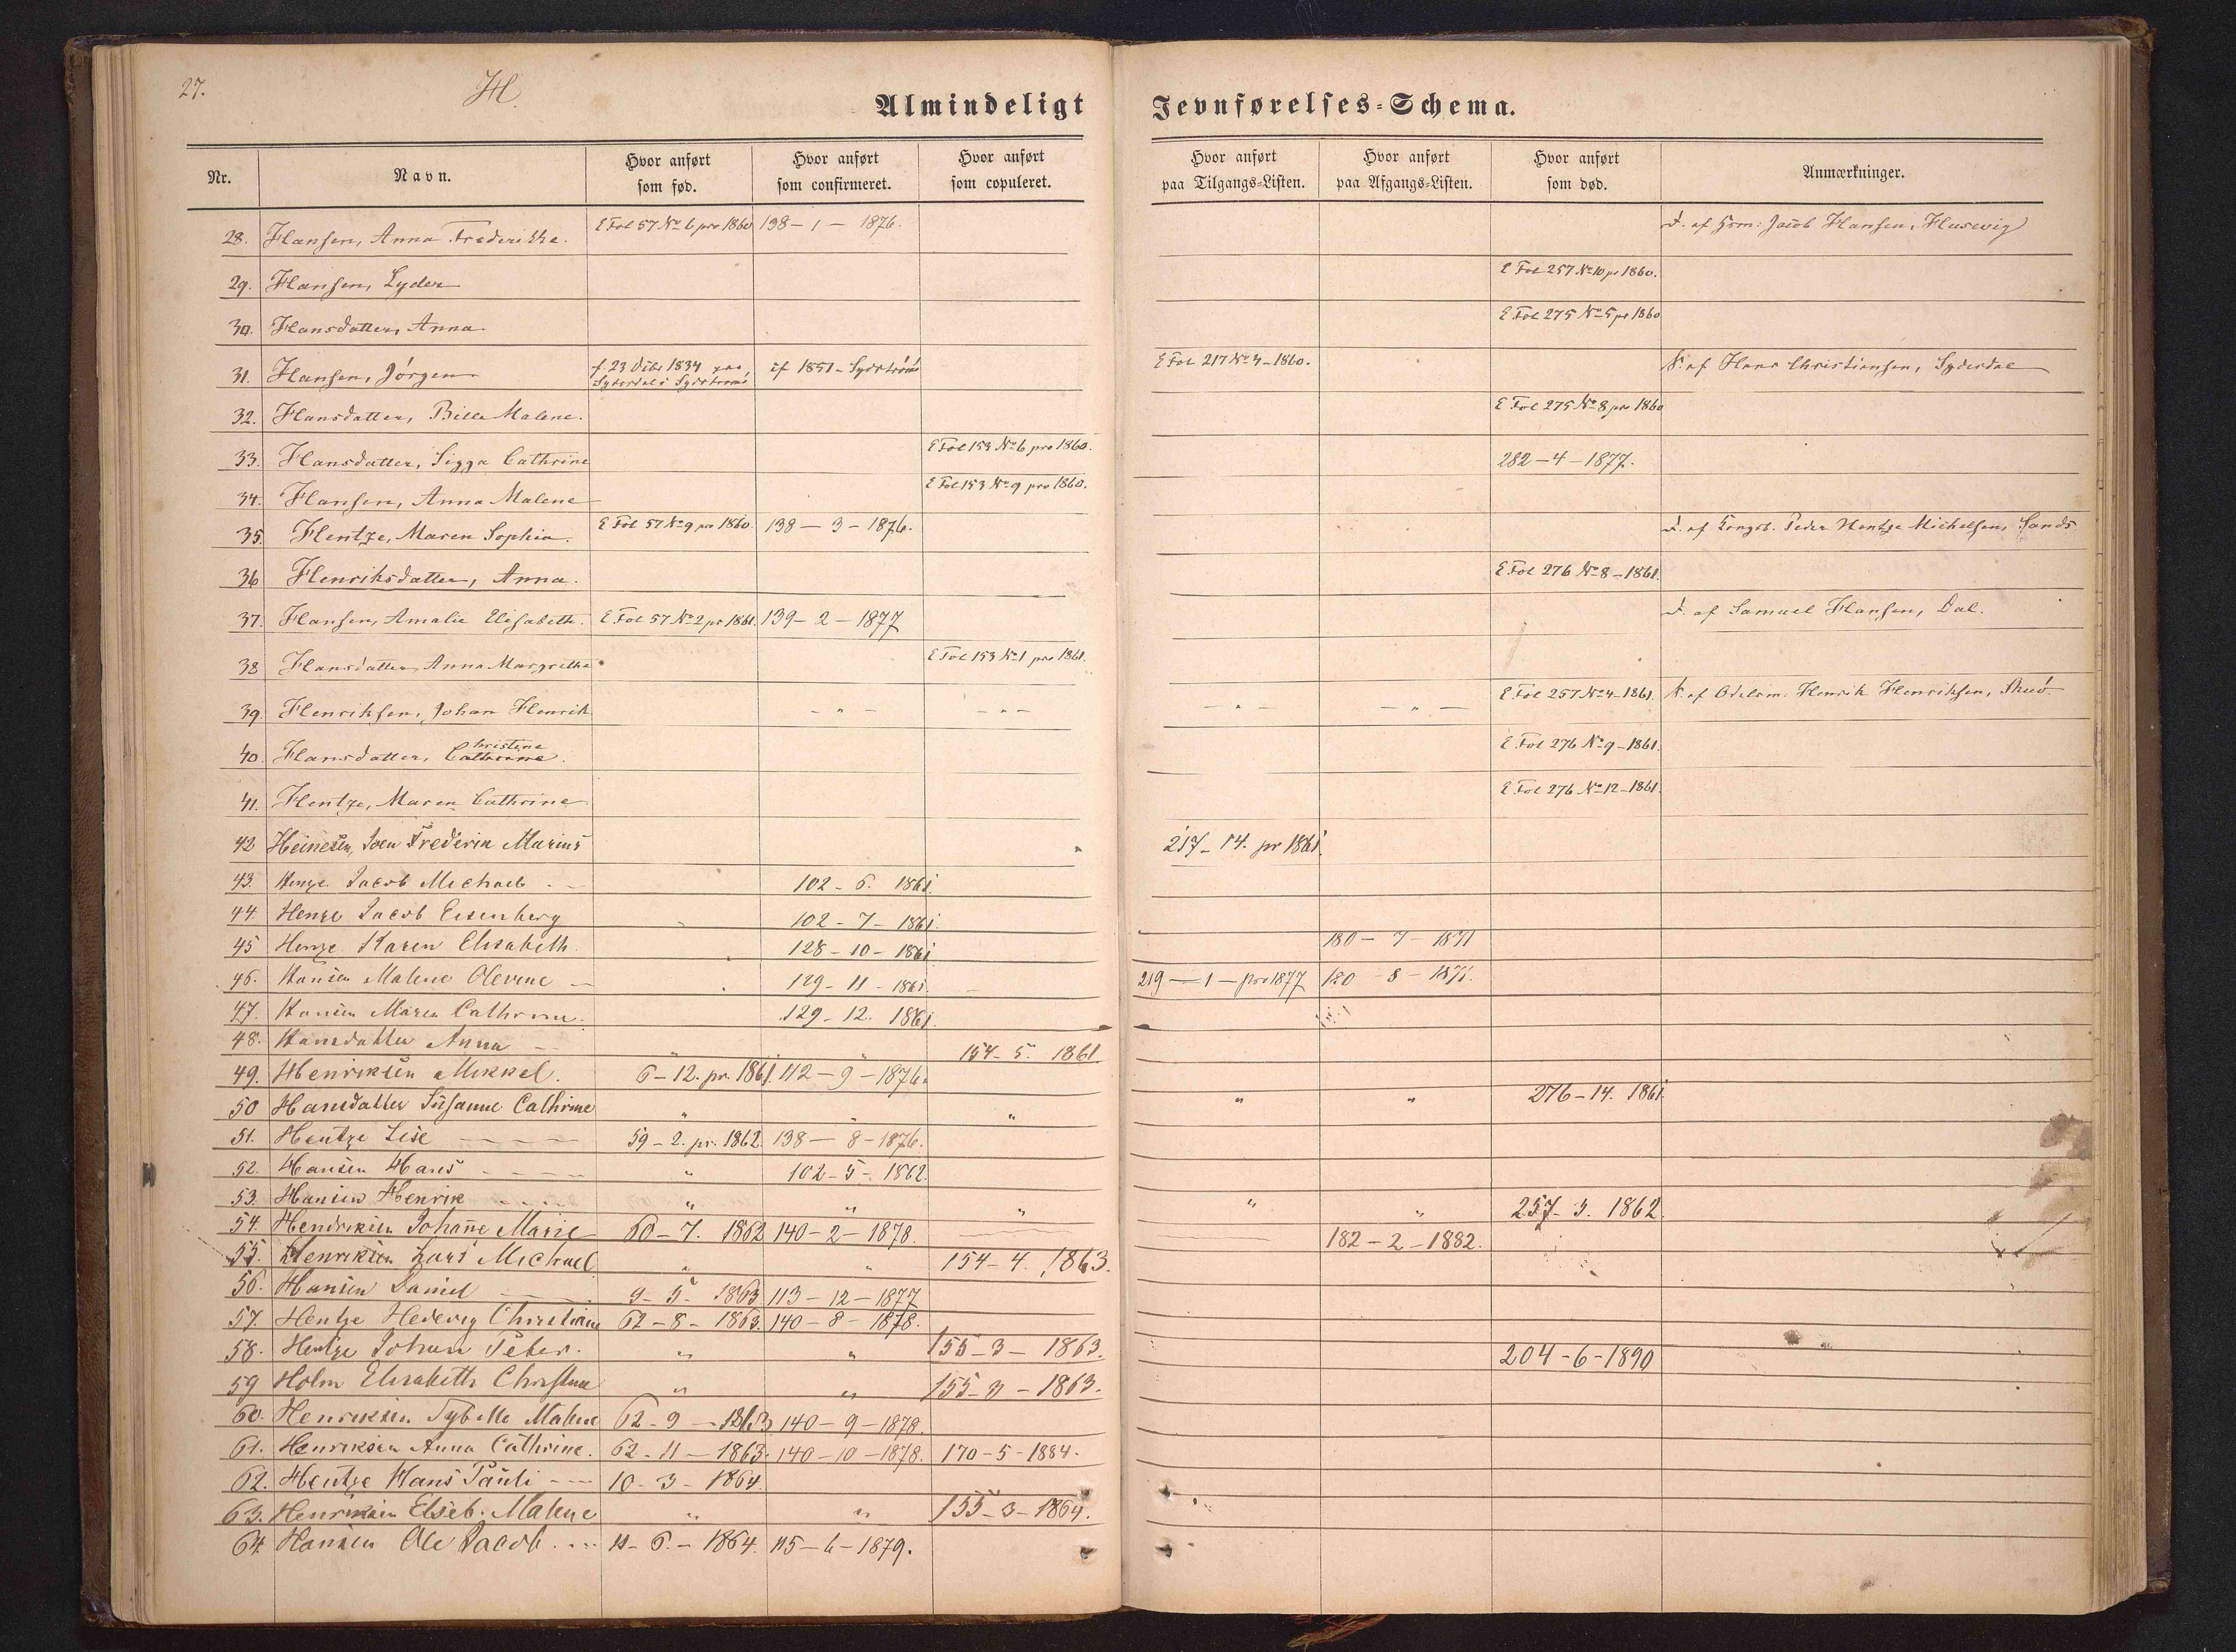 27.
H.
Almindeligt Jevnførelses-Schema.
Nr. Navn. Hvor anført som fød. Hvor anført som confirmeret. Hvor anført som copuleret. Hvor anført paa Tilgangs-Listen. Hvor anført paa Afgangs-Listen. Hvor anført som død. Anmærkninger.
28. Hansen, Anna Frederikke. E Fol 57 No 6 pro 1860 138 – 1 – 1876. D. af Hansen, Husevig
29. Hansen, Lyder E Fol 257 No 10 pr 1860.
30. Hansdatter, Anna. E Fol 275 No 5 pr 1860
31. Hansen, Jørgen f. 23 1834 1851 – E Fol 217 No 4 – 1860. S. af Hans Christiansen, Syderdal
32. Hansdatter, Bille Malene. E Fol 275 No 8 pro 1860
33. Hansdatter, Sigga Cathrine E Fol 153 No 6 pro 1860. 282 – 4 – 1877.
34. Hansen, Anna Malene E Fol 153 No 9 pro 1860.
35. Hentze, Maren Sophia. E Fol 57 No 9 pro 1860. 138 – 3 – 1876. D. af Kongsb. Peder Hentze Michelsen, Sands
36 Henriksdatter, Anna. E Fol 276 No 8 – 1861.
37. Hansen, Amalie Elisabeth. E Fol 57 No 2 pr 1861. 139 – 2 – 1877 D. af Samuel Hansen, Dal.
38 Hansdatter, Anna Margrethe E Fol 153 No 1 pro 1861.
39. Henriksen, Johan Henrik – " – – " – – " – – " – E Fol 257 No 4 – 1861. S. af Odelsm. Henrik Henriksen, Skuø.
40. Hansdatter, Christine Cathrine. E Fol 276 No 9 – 1861.
41. Hentze, Maren Cathrine E Fol 276 No 12 – 1861.
42 Heinesen, Joen Frederik Marius 217 – 14. pr 1861.
43. Henze Jacob Michael 102 – 6. 1861.
44. Henze Jacob Eisenberg 102 – 7 – 1861.
45 Henze Karen Elisabeth. 128 – 10 – 1861 180 – 7 – 1871
46. Hansen Malene Olevine 129 – 11 – 1861. 219 – 1 – pro 1877 180 – 8 – 1871.
47. Hansen Maren Cathrine. 129 – 12. 1861.
48. Hansdatter Anna " " 154 – 5. 1861.
49. Henriksen Mikkel. 6 – 12. pr. 1861. 112 – 9 – 1876.
50 Hansdatter Susanne Cathrine " " " " " 276 – 14. 1861.
51. Hentze Lise 59 – 2. pr. 1862. 138 – 8 – 1876.
52. Hansen Hans " 102 – 5 – 1862.
53. Hansen Henrik " " " " " 257 – 3. 1862.
54. Hendriksen Johanne Marie 60 – 7. 1862 140 – 2 – 1878. 182 – 2 – 1882.
55. Henriksen Lars Michael " " 154 – 4. 1863.
56. Hansen Daniel 9 – 5 – 1863 113 – 12 – 1877
57. Hentze Hedevig Christine 62 – 8 – 1863. 140 – 8 – 1878.
58. Hentze Johan Peter. " " 155 – 3 – 1863. 204 – 6 – 1890
59 Holm Elisabeth Christine " " 155 – 3 – 1863.
60. Henriksen Sybille Malene 62 – 9 – 1863 140 – 9 – 1878.
61. Henriksen Anna Cathrine. 62 – 11 – 1863. 140 – 10 – 1878. 170 – 5 – 1884.
62. Hentze Hans Pauli 10 – 3 – 1864.
63. Henriksen Elseb. Malene " " 155 – 3 – 1864.
64. Hansen Ole Jacob. 11 – 6. – 1864. 115 – 6 – 1879.